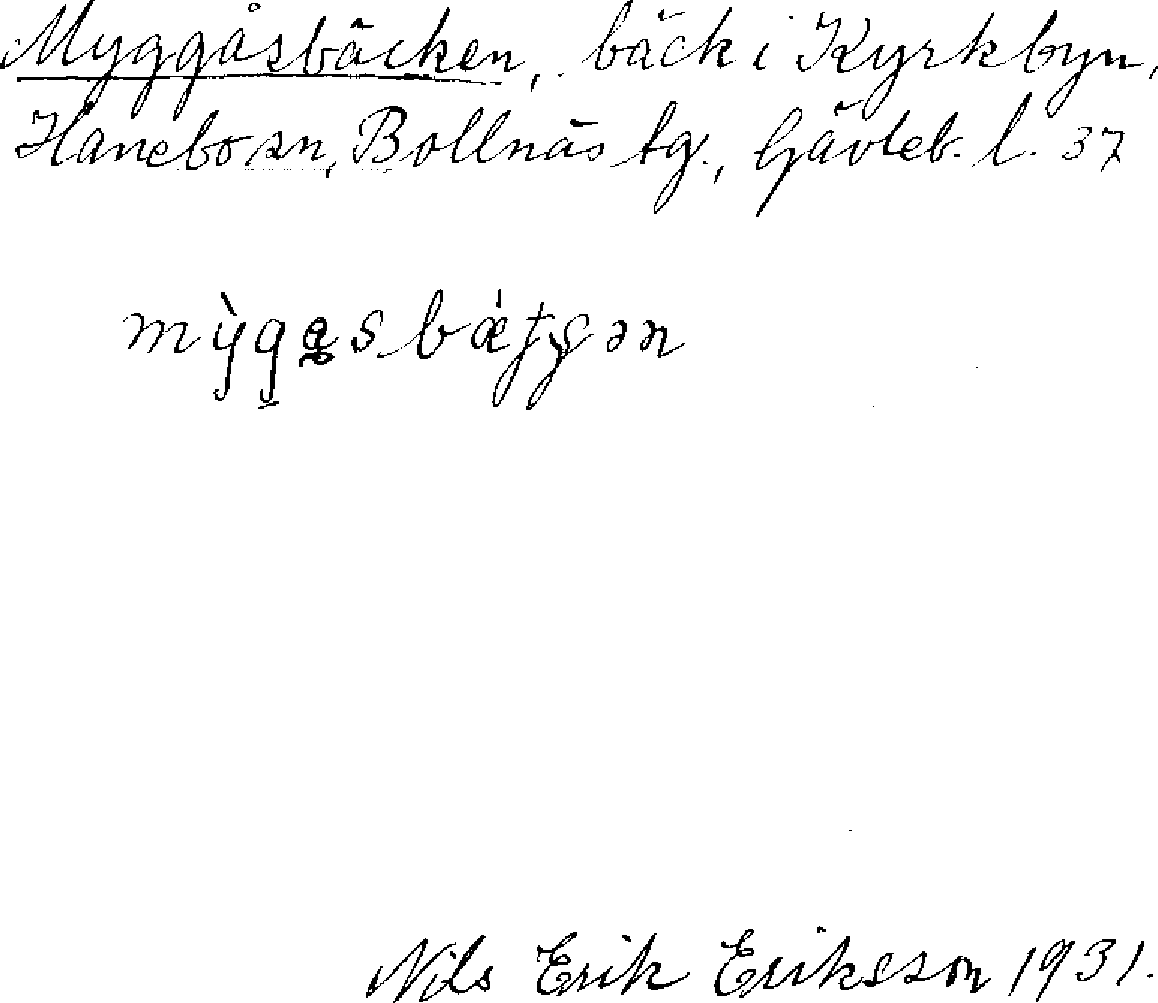 Myggåsbäcken, bäck i Kyrkbyn,
Hanebo sn, Bollnäs tg., Gävleb. l. 37
Nils Erik Eriksson 1931.